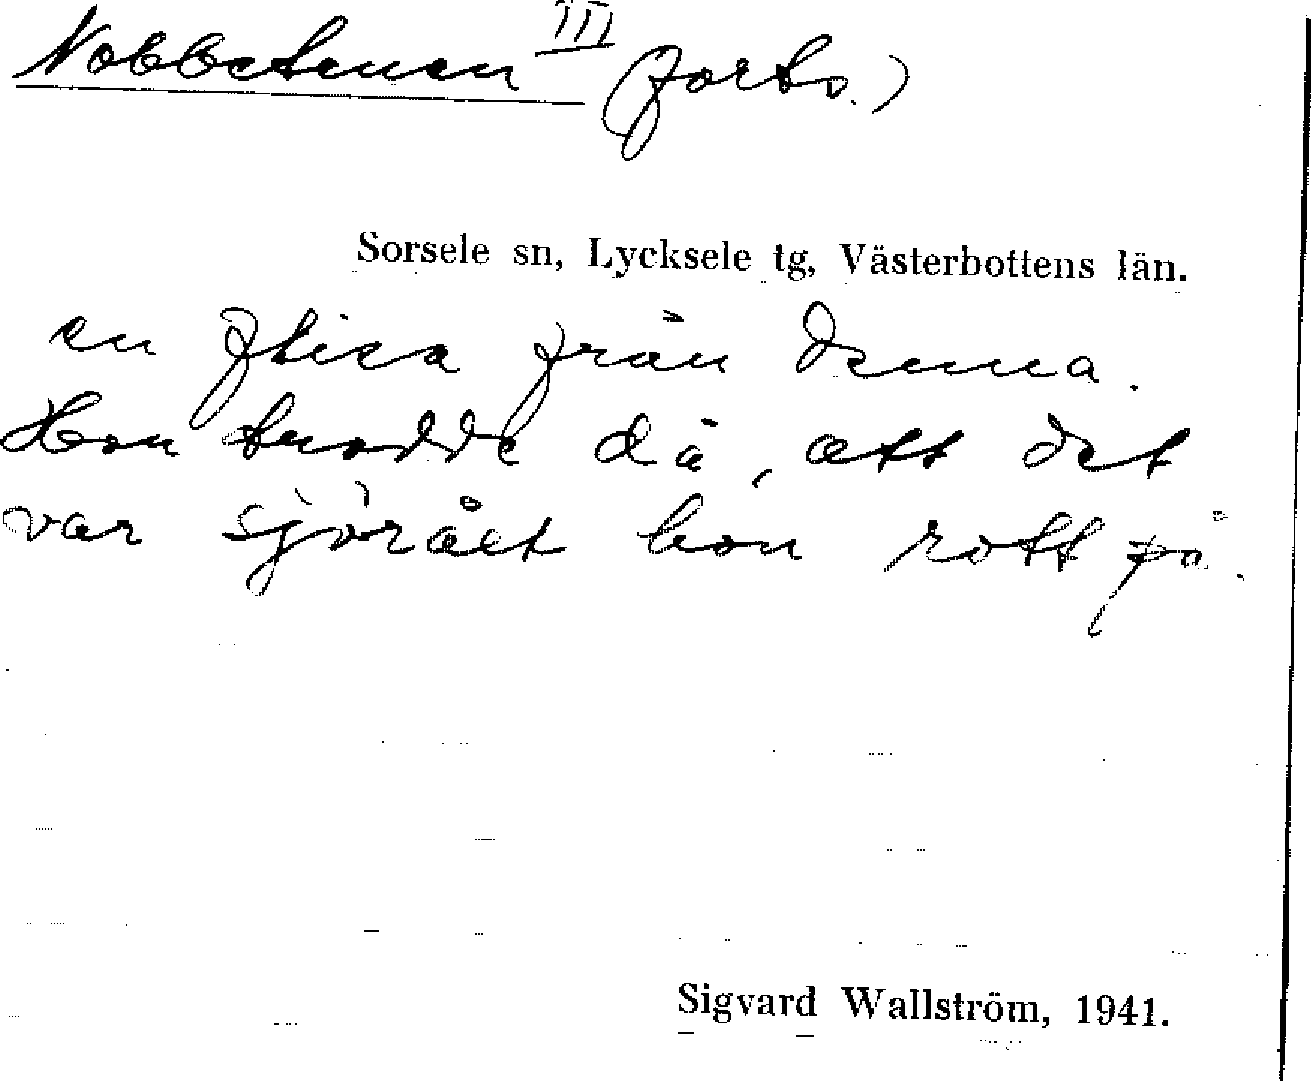 Nobbetenen III (forts.)
Sorsele sn, Lycksele tg, Västerbottens län.
en flisa från denna.
Hon trodde då, att det
var sjörået hon rott på.
Sigvard Wallström, 1941.